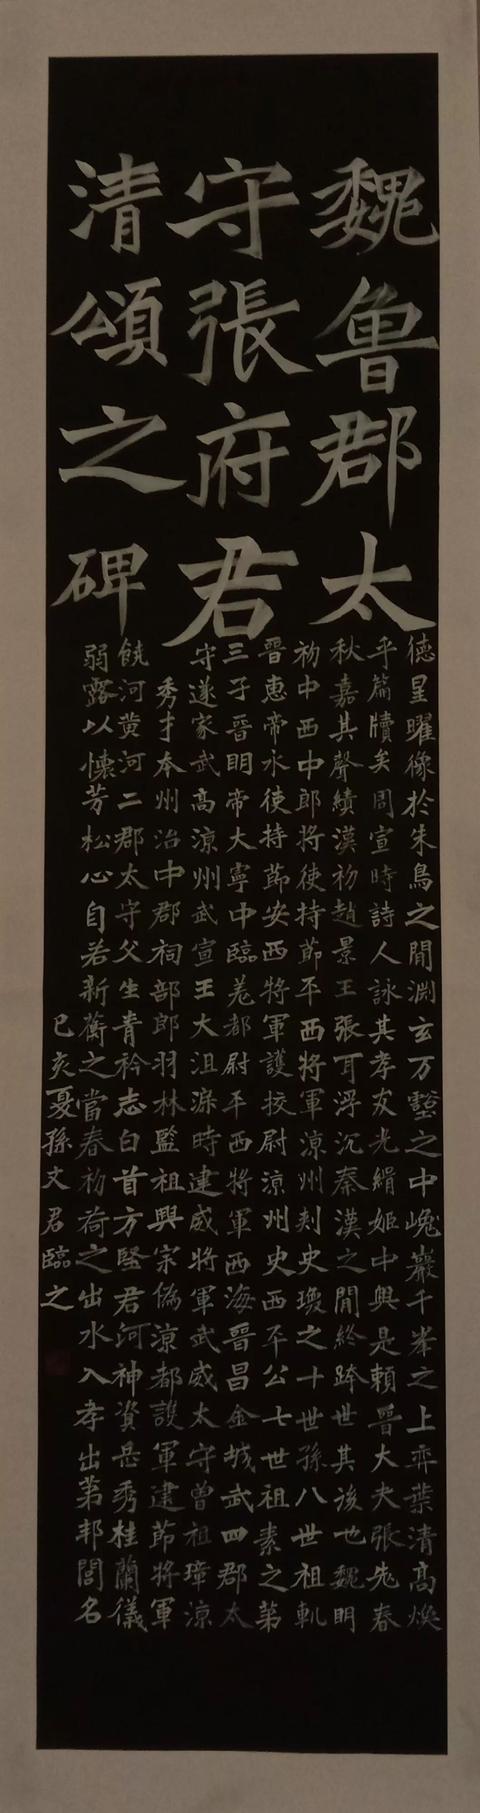 魏魯郡太
守張府君
清頌之碑
德星曜像於朱鳥之間渊玄万壑之中巉巖千峯之上弈葉清高煥
乎篇牘矣周宣時詩人詠其孝友光緝姬中興是賴晉大夫張老春
秋嘉其聲績漢初趙景王張耳浮沉秦漢之間終跨世其後也魏明
初中西中郎將使持節平西將軍涼州刾史瓊之十世孫八世祖軌
晉惠帝永使持節安西將軍護挍尉涼州史西平公七世祖素之第
三子晉明帝大寧中臨羌都尉平西將軍西海晉昌金城武四郡太
守遂家武高涼州武宣王大沮渠時建威將軍武威太守曾祖璋涼
秀才本州治中郡祠部郎羽林監祖興宗偽涼都護軍建節將軍
饒河黄河二郡太守父生青衿志白首方堅君河神資岳秀桂蘭儀
弱露以懷芳松心自若新蘅之當春初荷之出水入孝出苐邦閭名
已亥夏孫文君臨之